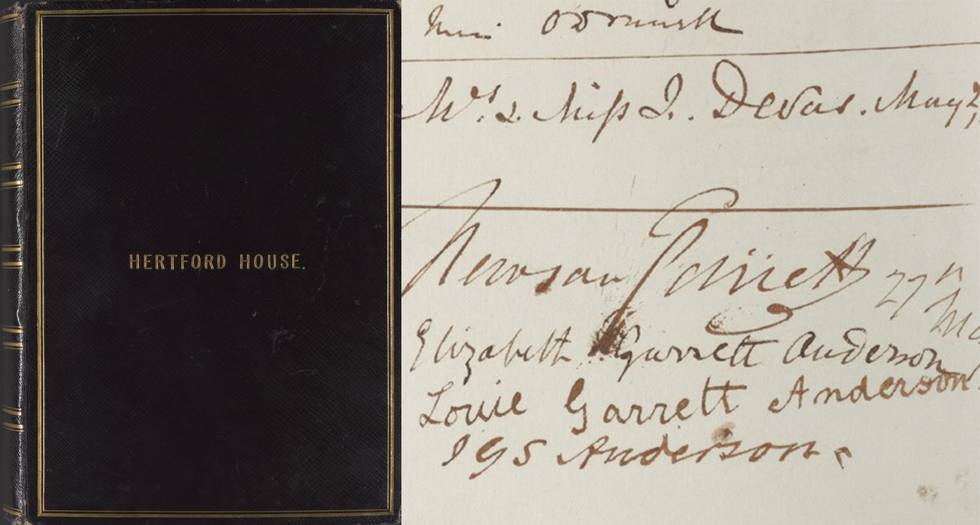 HERTFORD HOUSE.
Mrs. & Miss J. Devas. May
Newson Garrett 27th
Elizabeth Garrett Anderson
Louie Garrett Anderson
J G S Anderson.